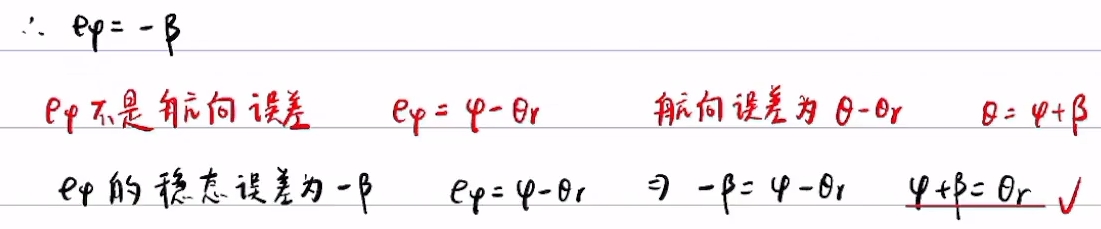 ∴ eφ = -β
eφ 不是 航向 误差 eφ = φ - θr 航向误差为 θ - θr θ = φ + β
eφ 的 稳态误差为 -β eφ = φ - θr ⇒ -β = φ - θr φ + β = θr ✓